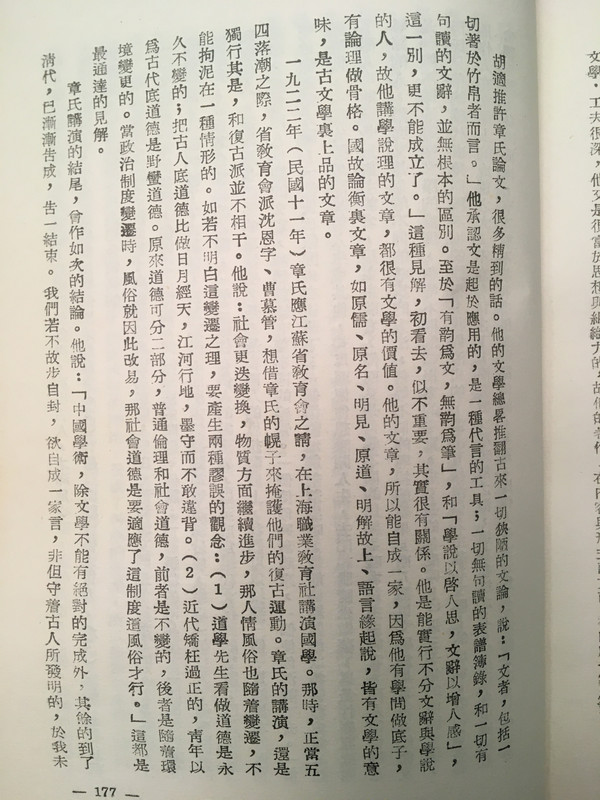 文學,工夫很深,他又是很富於思想與組織力的,故他的著作,在內容與形式
胡適推許章氏論文,很多精到的話。他的文學總畧推翻古來一切狹陋的文論,說:「文者,包括一
切著於竹帛者而言。」他承認文是起於應用的,是一種代言的工具;一切無句讀的表譜簿錄,和一切有
句讀的文辭,並無根本的區別。至於「有韵爲文,無韵爲筆」,和「學說以啓人思,文辭以增人感」,
這一別,更不能成立了。」這種見解,初看去,似不重要,其實很有關係。他是能實行不分文辭與學說
的人,故他講學說理的文章,都很有文學的價值。他的文章,所以能自成一家,因爲他有學問做底子,
有論理做骨格。國故論衡裏文章,如原儒、原名、明見、原道、明解故上、語言緣起說,皆有文學的意
味,是古文學裏上品的文章。
一九二二年(民國十一年)章氏應江蘇省敎育會之請,在上海職業敎育社講演國學。那時,正當五
四落潮之際,省敎育會派沈恩孚、曹慕管,想借章氏的幌子來掩護他們的復古運動。章氏的講演,還是
獨行其是,和復古派並不相干。他說:社會更迭變換,物質方面繼續進步,那人情風俗也隨着變遷,不
能拘泥在一種情形的。如若不明白這變遷之理,要產生兩種謬誤的觀念:(1)道學先生看做道德是永
久不變的;把古人底道德比做日月經天,江河行地,墨守而不敢違背。(2)近代矯枉過正的,靑年以
爲古代底道德是野蠻道德。原來道德可分二部分,普通倫理和社會道德,前者是不變的,後者是隨着環
境變更的。當政治制度變遷時,風俗就因此改易,那社會道德是要適應了這制度這風俗才行。」這都是
最通達的見解。
章氏講演的結尾,曾作如次的結論。他說:「中國學術,除文學不能有絕對的完成外,其餘的到了
淸代,已漸漸告成,告一結束。我們若不故步自封,欲自成一家言,非但守着古人所發明的,於我未
— 177 —